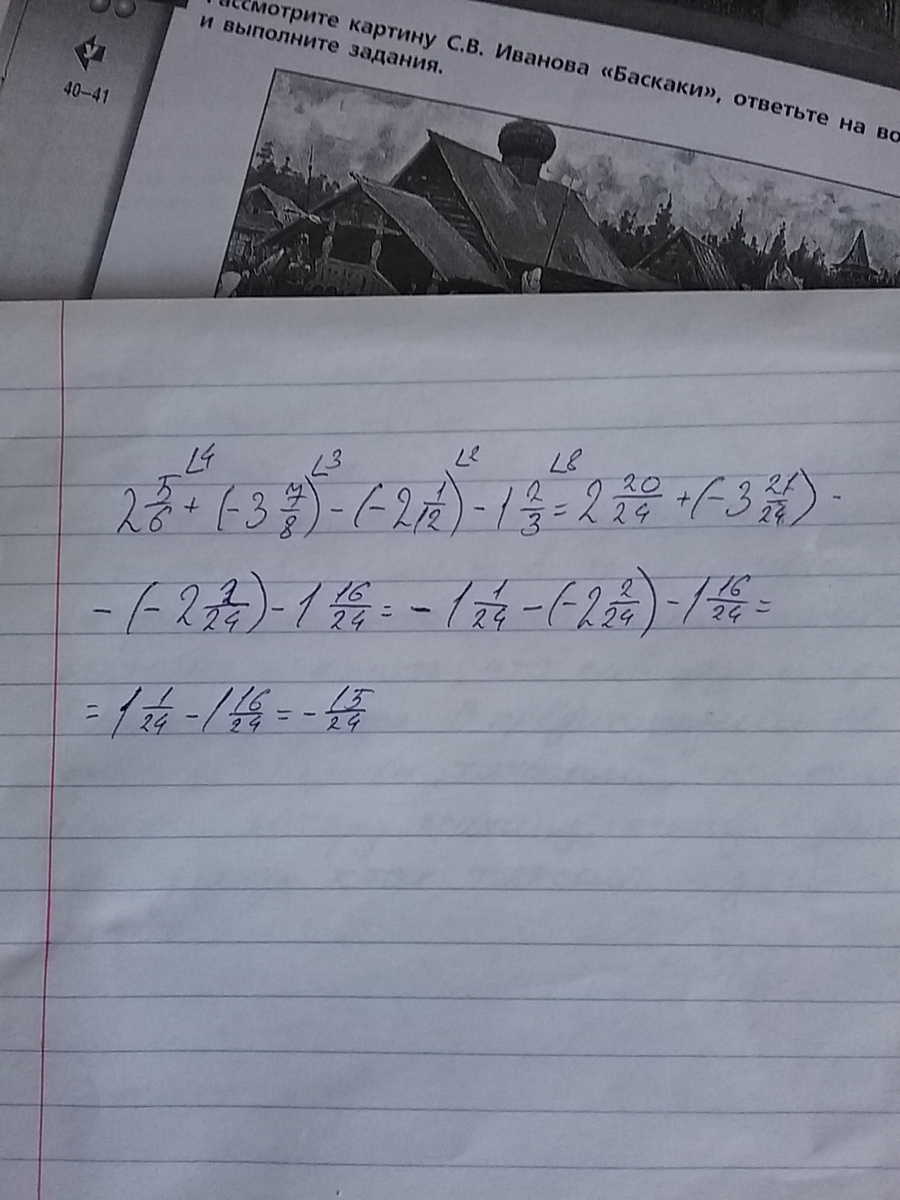 Рассмотрите картину С.В. Иванова «Баскаки», ответьте на во
и выполните задания.
У
40–41
∠4 ∠3 ∠2 ∠8
2 5/6 + (-3 7/8) - (-2 1/12) - 1 2/3 = 2 20/24 + (-3 21/24) -
- (-2 2/24) - 1 16/24 = - 1 1/24 - (-2 2/24) - 1 16/24 =
= 1 1/24 - 1 16/24 = - 15/24